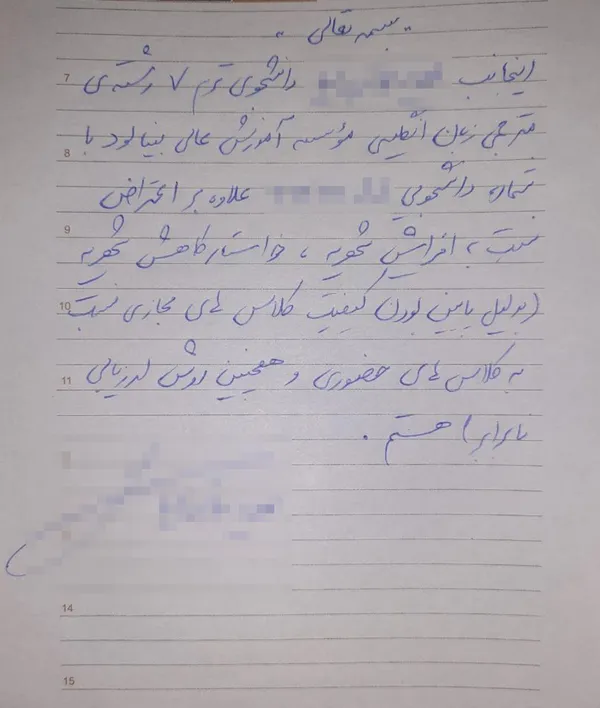 بسمه تعالی
اینجانب دانشجوی ترم ۷ رشته ی
مترجمی زبان انگلیسی مؤسسه آموزش عالی بینالود با
شماره دانشجویی علاوه بر اعتراض
نسبت به افزایش شهریه ، خواستار کاهش شهریه
(بدلیل پایین بودن کیفیت کلاس های مجازی نسبت
به کلاس های حضوری و همچنین روش ارزیابی
نابرابر) هستم .
7
8
9
10
11
14
15